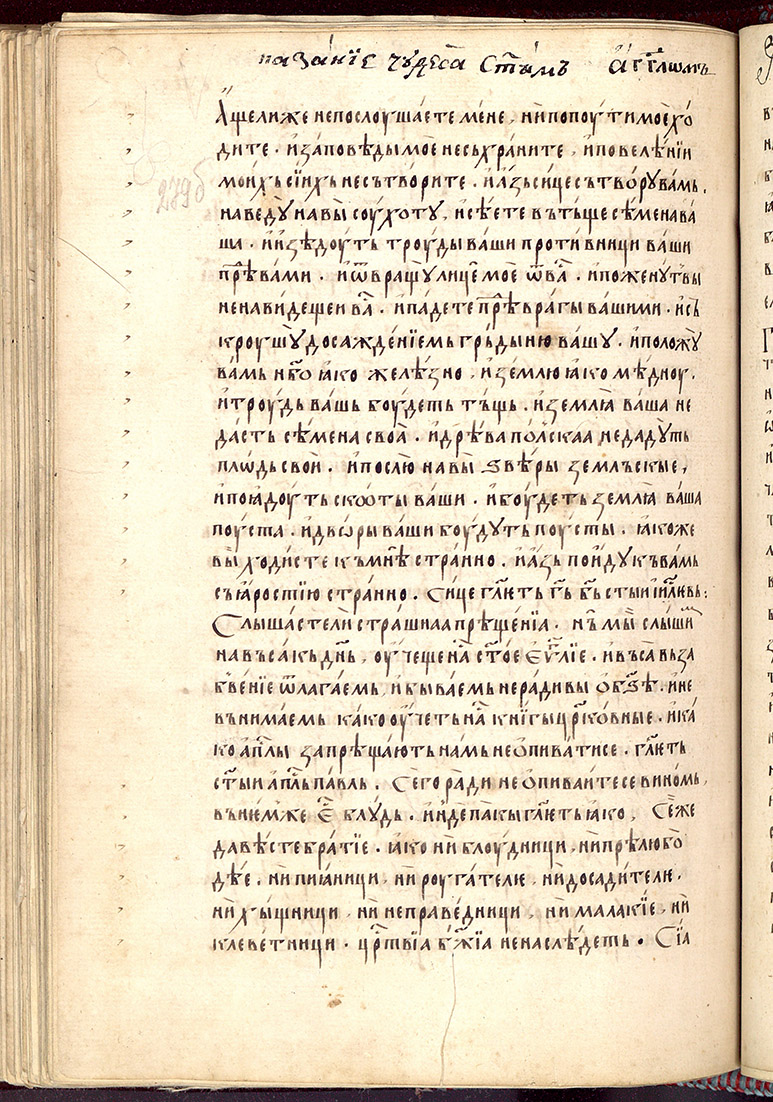 пазанїе чудеса ст҃ымъ а҆гг҃лѡмъ
279б
А҆щелиже непослоушаете мене , нипопоути моѐхо́
дите . и҆заповѣды мое несьхраните , и҆повелѣнїи
мои́хь сїи́хь несътво́рите . и҆а҆зь си́це сътво́ру ва́мь .
наведꙋ навы̀ соухотꙋ , и҆сѣ́ете вътъще сѣмена ва́
ша . и҆и҆зѣдоуть троуды ва́ши проти́вници ва́ши
прⷣѣвами . и҆ѿвращꙋ лицѐ мое ѿва́ⷭ . и҆поженꙋть вы̀
ненавидещеи ва́ⷭ . и҆па́дете прⷣѣврагы ва́шими . и҆съ
кроушꙋ досажде́нїемь гръды́ню ва́шꙋ . и҆положꙋ
ва́мь нб҃о ꙗ҆ко желѣзно , и҆землю ꙗ҆ко мѣдноу .
и҆троудь ва́шь боудеть тъщь . и҆землꙗ̀ ва́ша не
да́сть сѣмена своа̀ . и҆дрѣва по́лскаа недадуть
пло́дь свои . и҆послю̀ на вы̀ ѕвѣ́ры земльскые ,
и҆поꙗдоуть ско́ты ва́ши . и҆боудеть землꙗ̀ ва́ша
поуста . и҆дворы ва́ши боудуть поусты . ꙗ҆коже
вы̀ ходисте къмнѣ̀ странно . и҆а҆зь поидꙋ къва́мь
съꙗростїю стра́нно . Си́це гл҃ѥть гь҃ бь҃ ст҃ыи і҆и҃лѥвь :
Слышастели стра́шнаа прѣще́нїа . нь мы̀ слы́ши
навъса́къ дн҃ь , оу҆чеще на́ⷭ ст҃ое еѵⷢ҇лїе . и҆въса въза
бвенїе ѿлагаемь , и҆бываемь неради́вы ѻбѕѣ . и҆не
вънимаемь како оу҆четь на́ⷭ книгы црⷦ҇ковные . и҆ка́
ко а҆пⷭ҇лы запрѣщають намь неѻпива́тисе . гл҃ѥть
ст҃ыи а҆пⷭ҇ль па́вль . Се́го ра́ди неѻпива́итесе вино́мь ,
въне́мже е҆ⷭ блу́дь . и҆нде па́кы гл҃ѥть ꙗ҆ко , Сеже
да вѣ́сте бра́тїе . ꙗ҆ко ни блоу́дници , нипрѣлюбо
дѣе . ни пиꙗници , ни роуга́телѥ , нидосади́телѥ .
ни хы́щници , ни непра́ведници , ни малакїе , ни
клевѣтници . црⷭ҇твїа бж҃їа ненаслѣдеть . Сїа